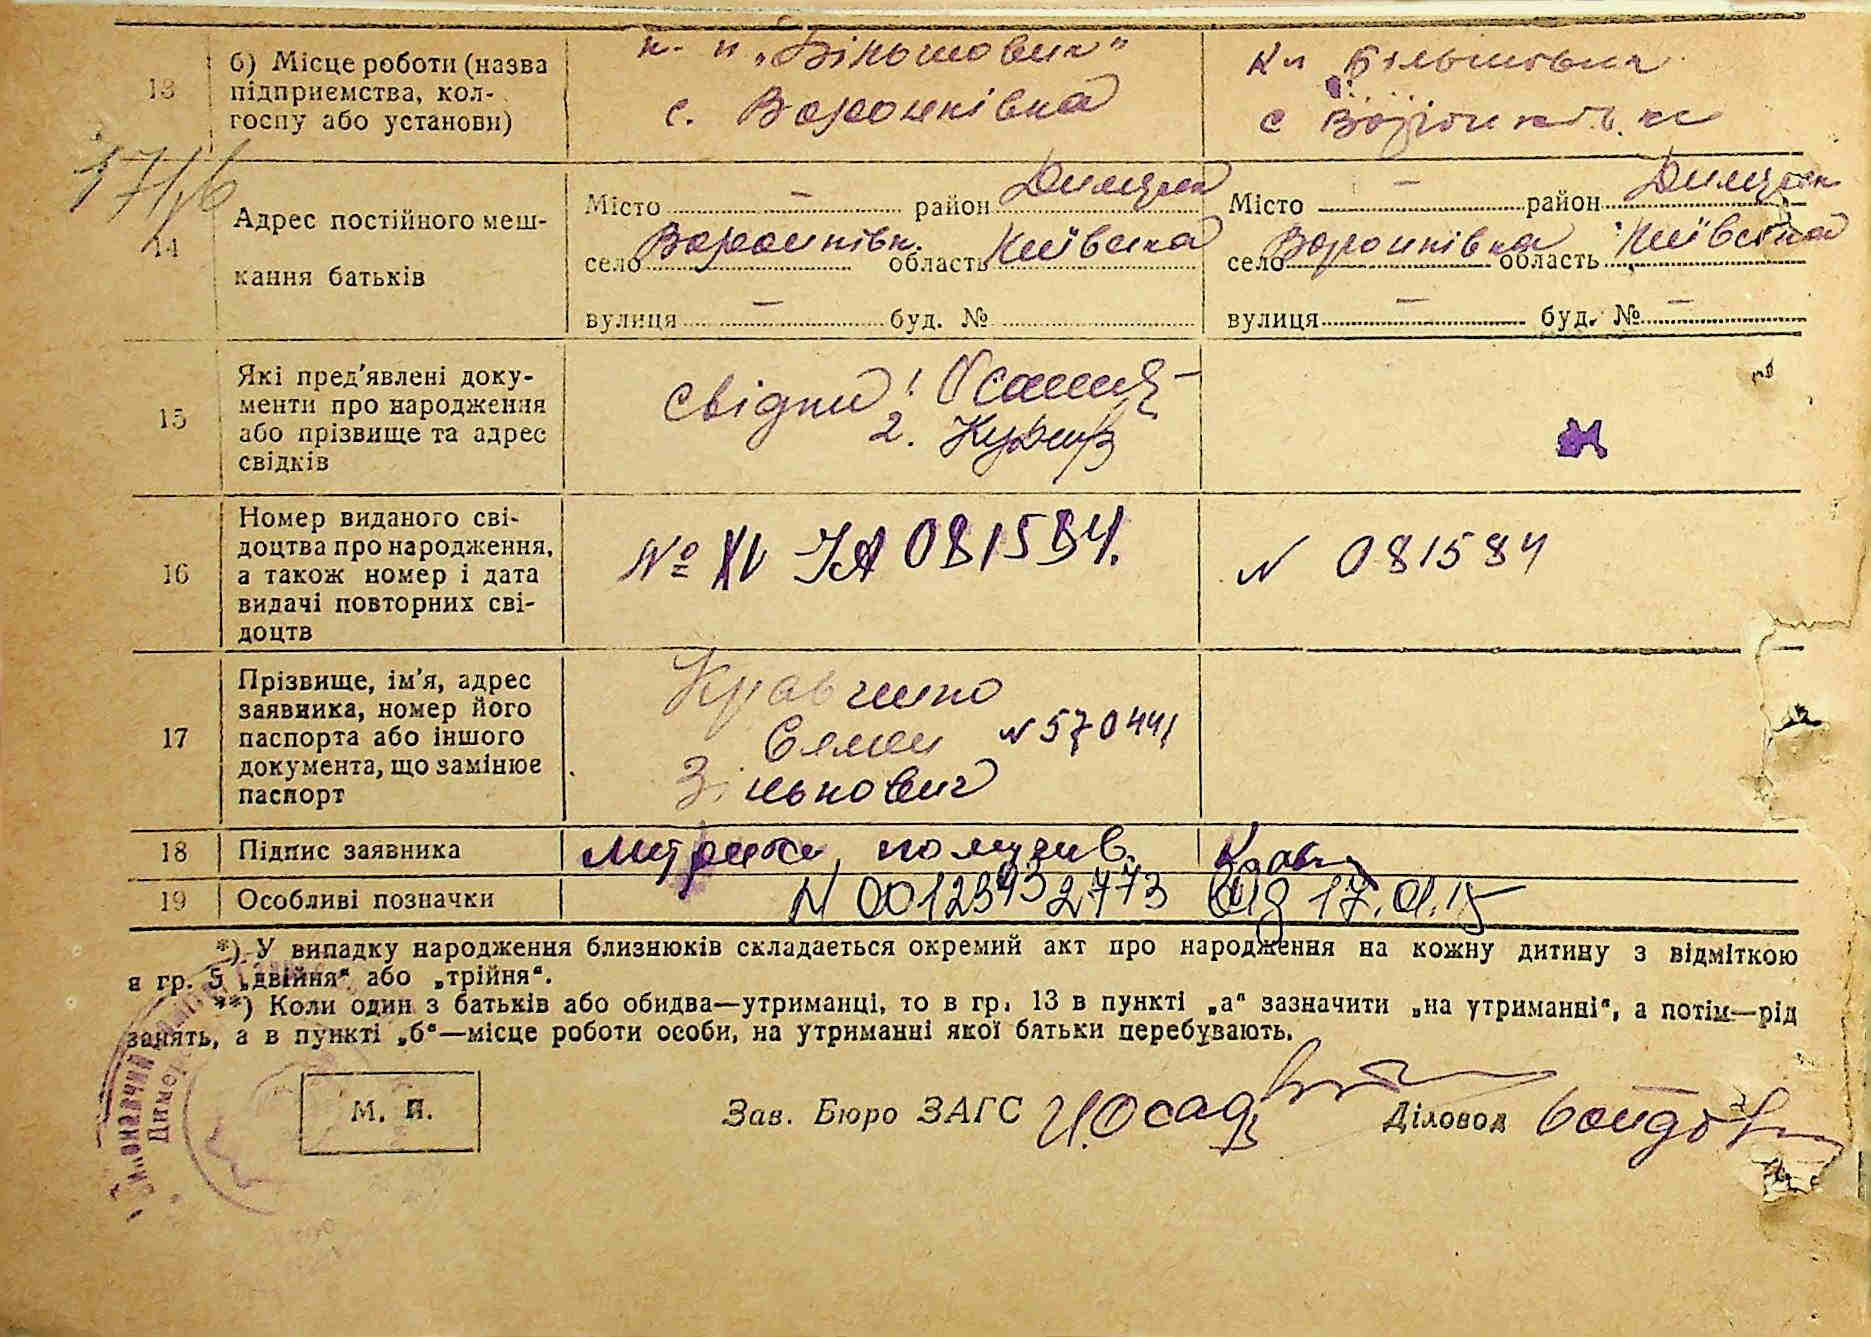 13
б) Місце роботи (назва підприємства, кол-госпу або установи)
к-п „Більшовик“
с. Воронківка
Кп Більшовик
с Воронківка
14
Адрес постійного меш-
кання батьків
Місто – район Димерськ
село Воронківк. область Київська
вулиця – буд. №
Місто – район Димерськ
село Воронківка область Київська
вулиця – буд. № –
15
Які пред'явлені доку-
менти про народження
або прізвище та адрес
свідків
свідки:
2.
16
Номер виданого сві-
доцтва про народження,
а також номер і дата
видачі повторних сві-
доцтв
№ XV ІА 081584.
N 081584
17
Прізвище, ім'я, адрес
заявника, номер його
паспорта або іншого
документа, що замінює
паспорт
Кравченко
Семен N 570441
Зінькович
18
Підпис заявника
метрики получив.
Кравч
19
Особливі позначки
N 00123932773 від 17.01.15
*) У випадку народження близнюків складається окремий акт про народження на кожну дитину з відміткою
в гр. 5 „двійня“ або „трійня“.
**) Коли один з батьків або обидва—утриманці, то в гр. 13 в пункті „а“ зазначити „на утриманні“, а потім—рід
занять, а в пункті „б“—місце роботи особи, на утриманні якої батьки перебувають.
М. П.
Зав. Бюро ЗАГС
Діловод